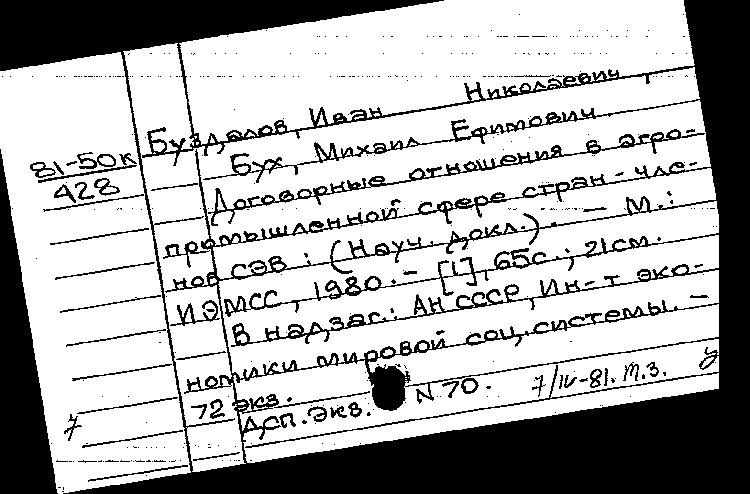 Буздалов, Иван Николаевич,
81-50к
428
Бух, Михаил Ефимович.
Договорные отношения в агро-
промышленной сфере стран-чле-
нов СЭВ: (Науч. докл.). — М.:
ИЭМСС, 1980. — [1], 65с.; 21см.
В надзаг.: АН СССР, Ин-т эко-
номики мировой соц. системы. —
72 экз.
ДСП. Экз. N 70.
7/IV-81. М.З.
у
7